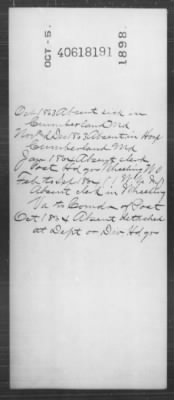 OCT - 5.
40618191
1898.
Oct 1863 Absent sick in
Cumberland Md
Nov & Dec 1863 Absent in Hosp
Cumberland Md
Jan 1864 Absent clerk
Post Hdqrs Wheeling W
Feb to
Absent clerk in Wheeling
Va to Comdr of Post
Oct 1864 Absent detached
at Dept or Div Hdqrs